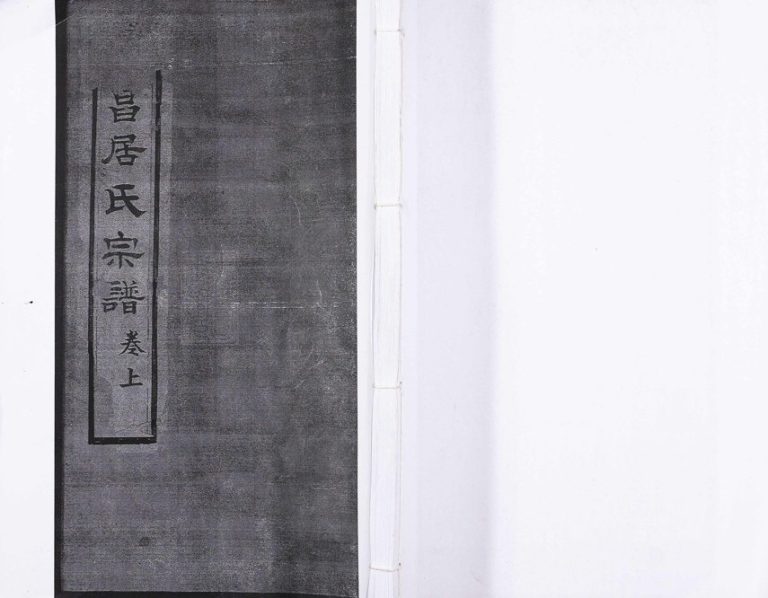 昌居氏宗譜 卷上